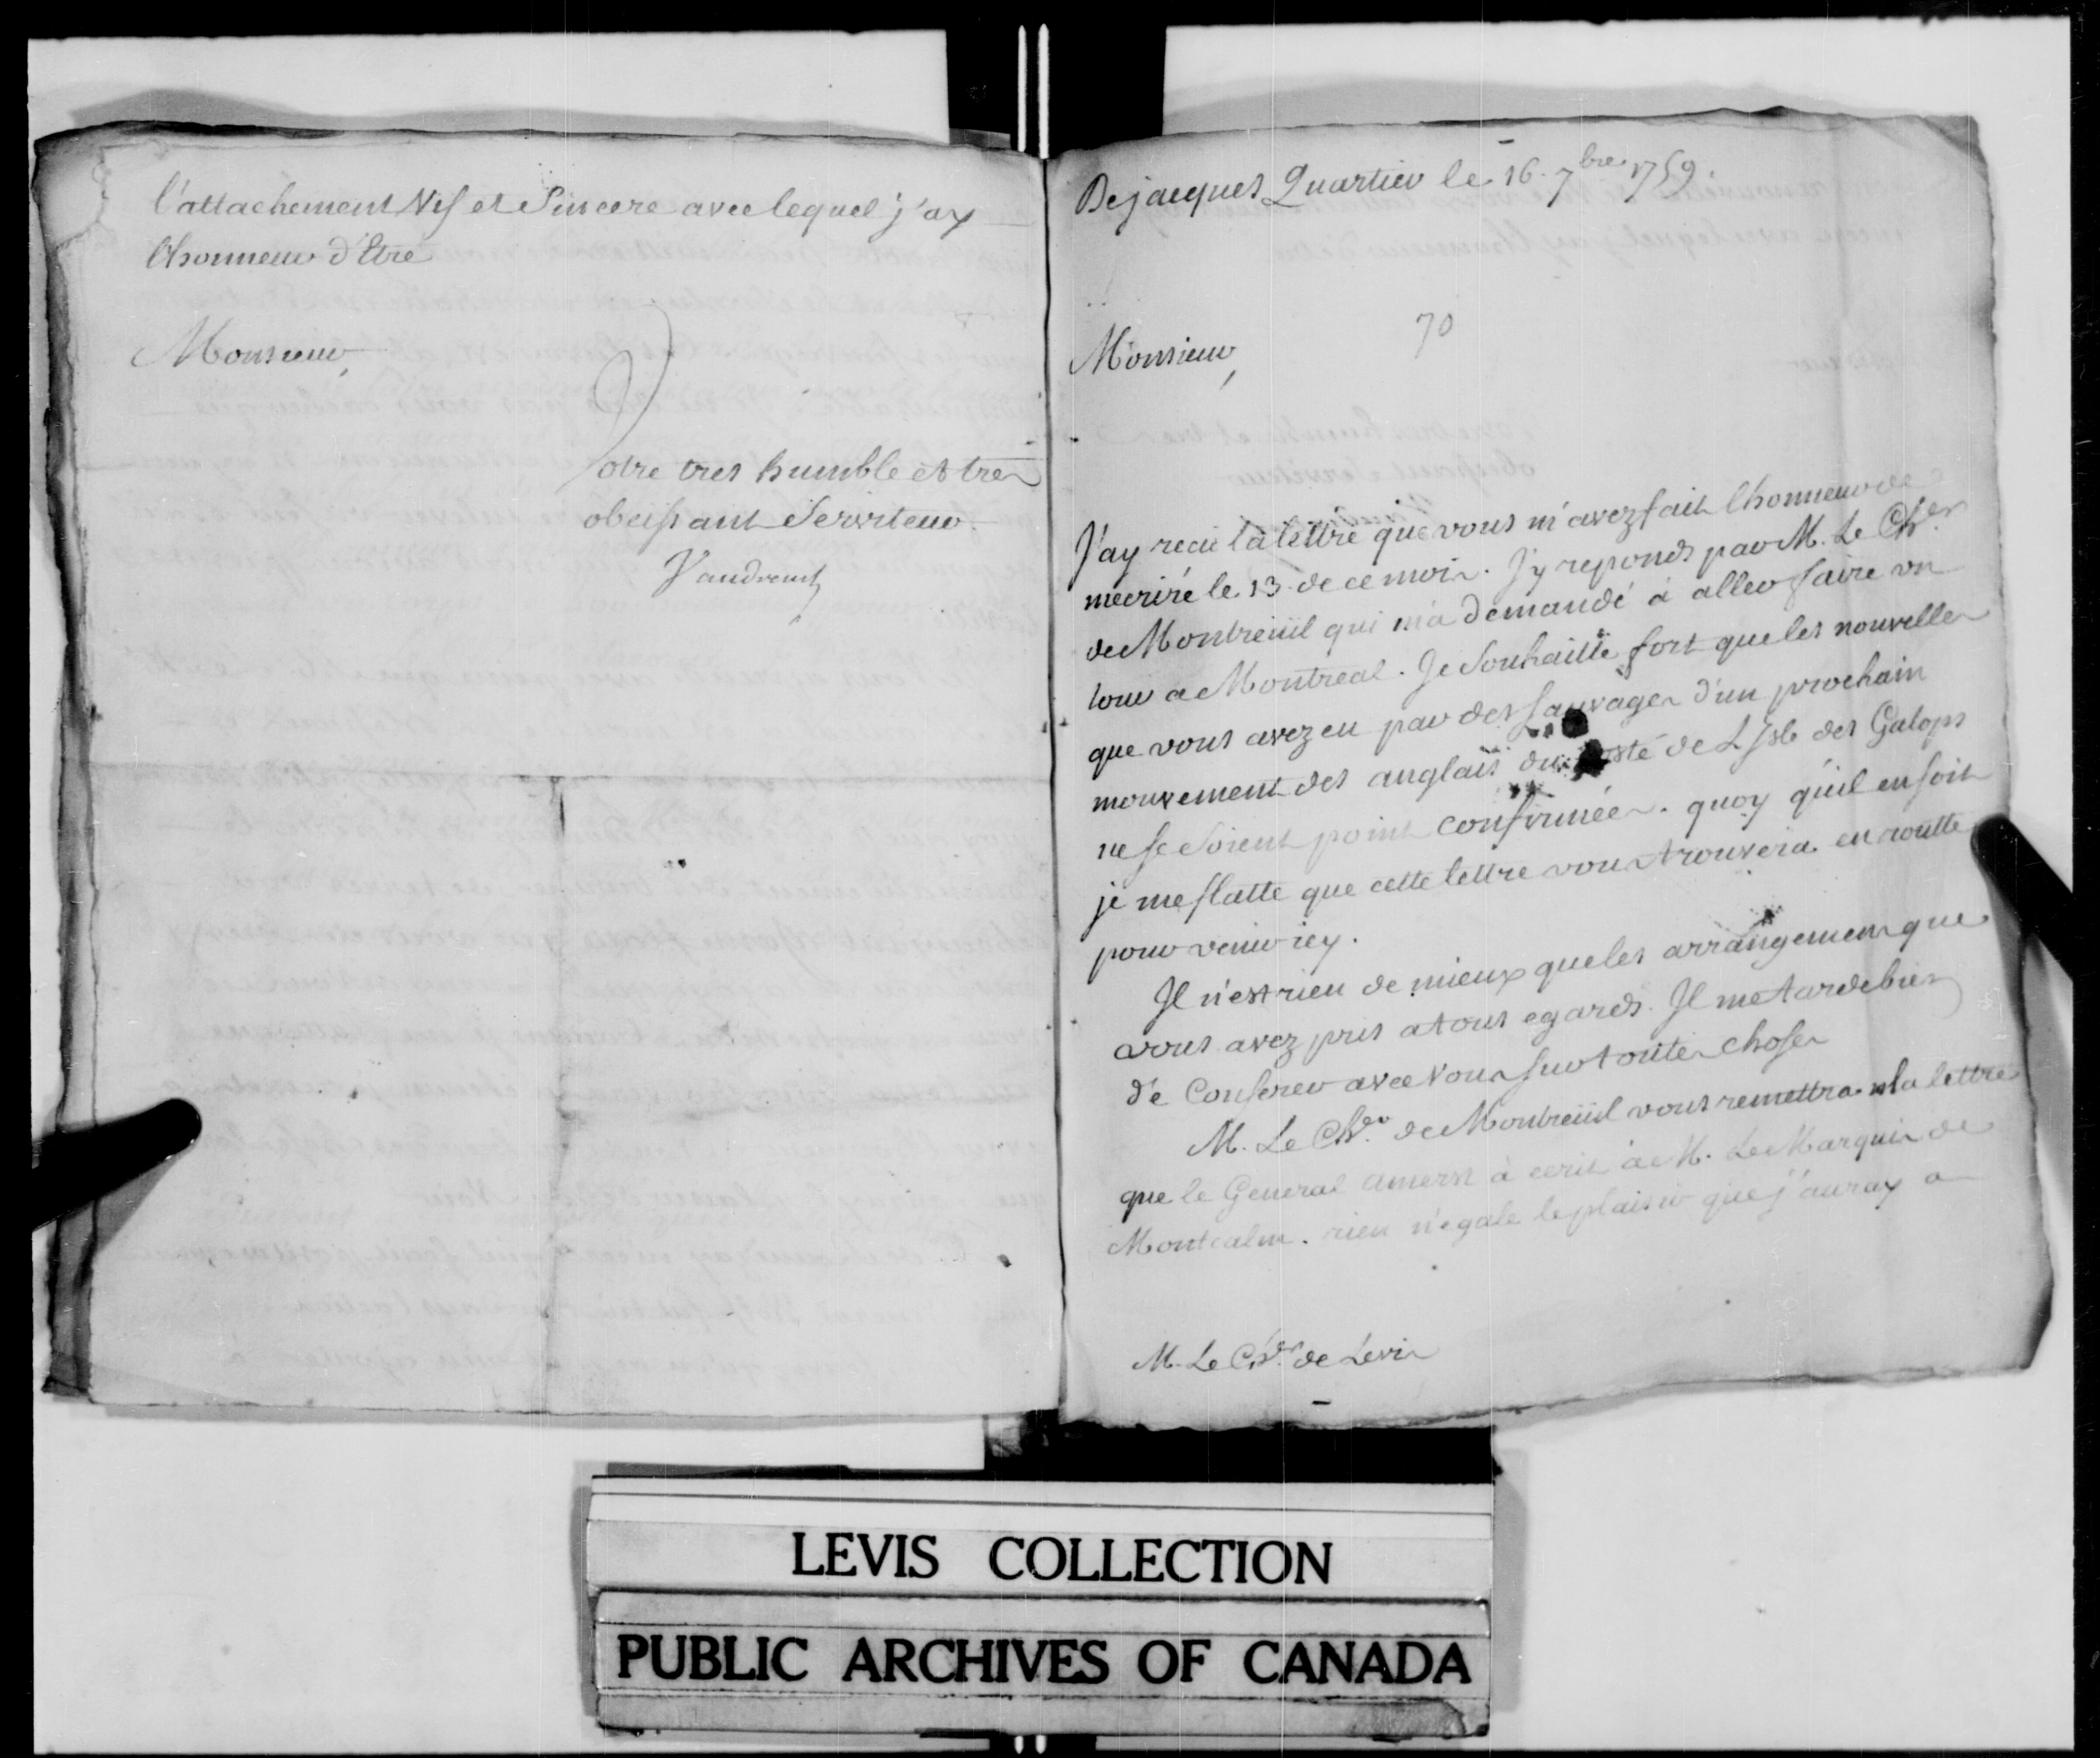 l'attachement Vif et Sincere avec lequel j'ay
l'honneur d'Etre
Monsieur,
Votre tres humble et tres
obeissant Serviteur.
Vaudreuil
De jacques Quartier le 16. 7bre 1759.
70
Monsieur,
J'ay recu la lettre que vous m'avez fait l'honneur de
mecrire le 13. de ce mois. J'y reponds par M. Le Cher
de Montreüil qui m'a demandé à aller faire un
tour a Montreal. Je Souhaitte fort que les nouvelles
que vous avez eu par des Sauvages d'un prochain
mouvement des anglais du costé de L'Isle des Galops
ne se Soient point confirmées. quoy qu'il en soit
je me flatte que cette lettre vous trouvera en routte
pour venir icy.
Il n'est rien de mieux que les arrangemens que
vous avez pris a tous egards. Il me tarde bien
de Conferer avec vous sur toutes choses
M. Le Cher de Montreüil vous remettra la lettre
que le General amerst à ecrit à M. Le Marquis de
Montcalm. rien n'egale le plaisir que j'auray a
M. Le Cher de Levis
LEVIS COLLECTION
PUBLIC ARCHIVES OF CANADA